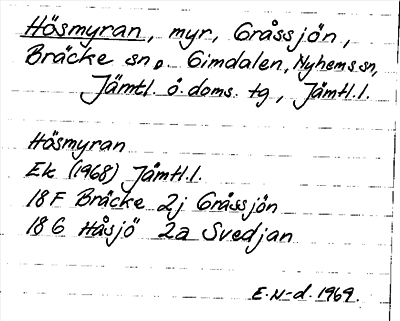 Hösmyran, myr, Gråssjön,
Bräcke sn o. Gimdalen, Nyhems sn,
Jämtl. ö. doms. tg, Jämtl.l.
Hösmyran
Ek (1968) Jämtl.l.
18F Bräcke 2j Gråssjön
18G Håsjö 2a Svedjan
E.N-d. 1969.